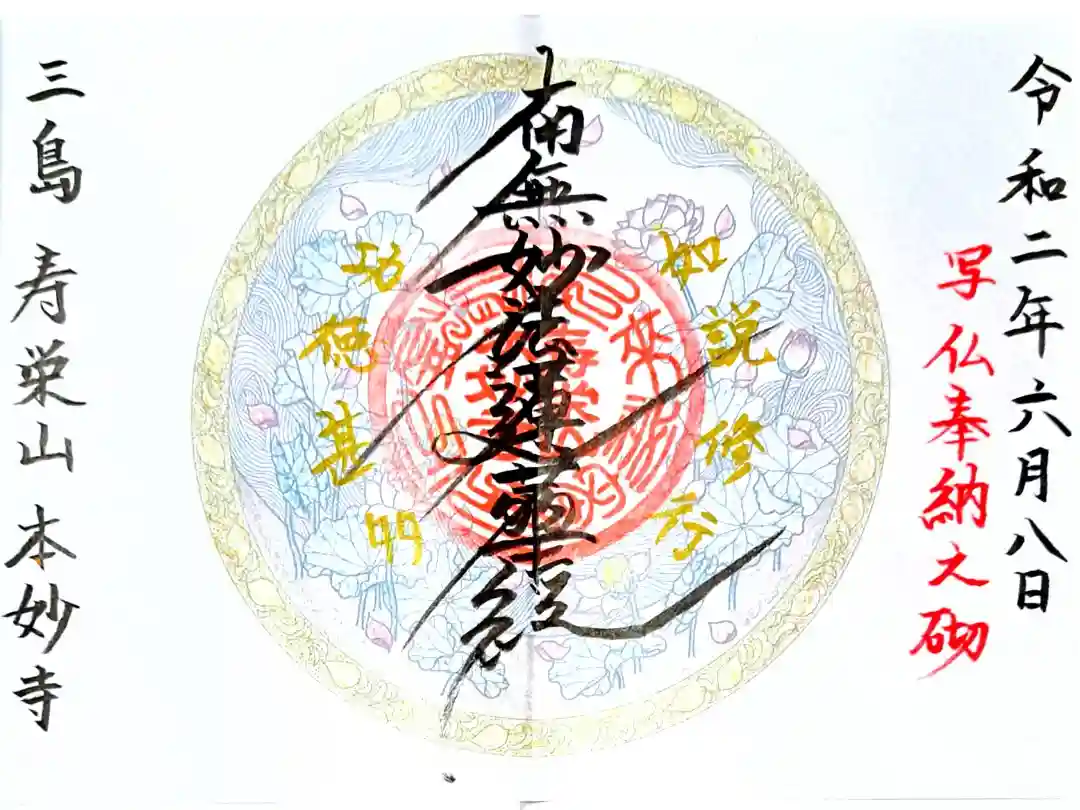 令和二年六月八日
写仏奉納之砌
如説修行
南無妙法蓮華経
功徳甚多
三島 寿栄山 本妙寺